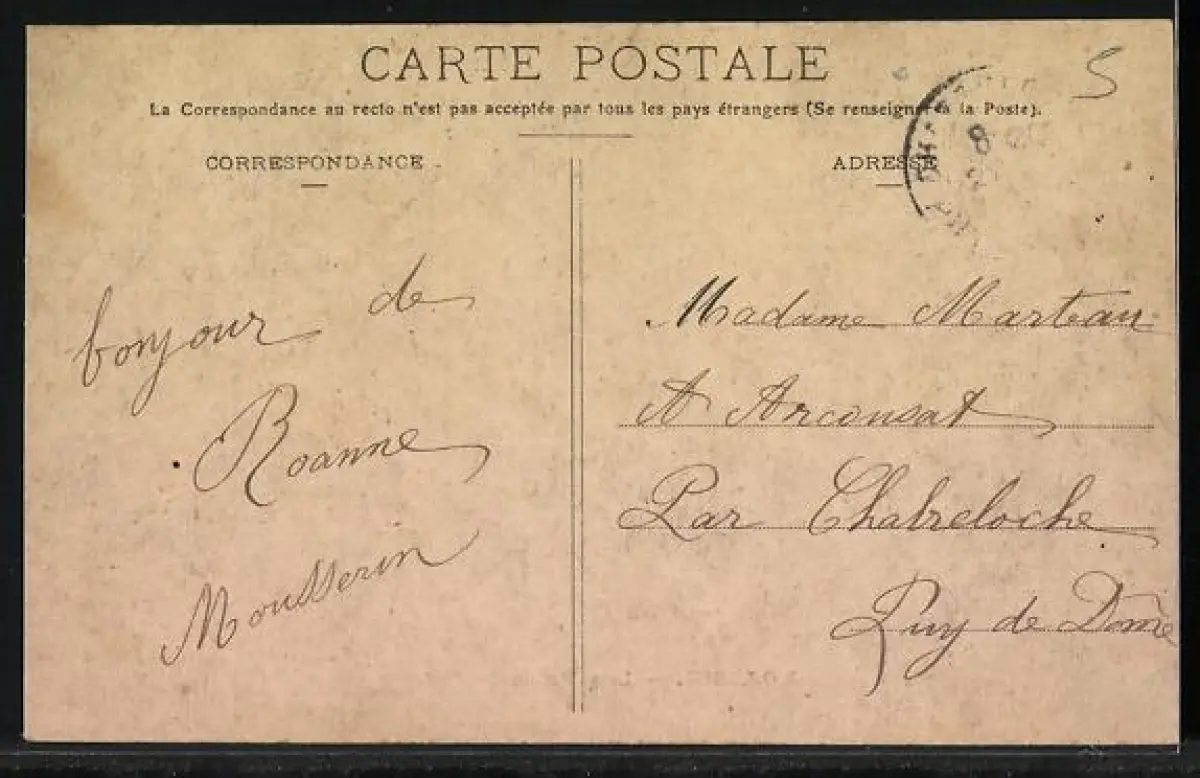 CARTE POSTALE
La Correspondance au recto n'est pas acceptée par tous les pays étrangers (Se renseigner à la Poste).
CORRESPONDANCE
ADRESSE
S
8
bonjour de
Roanne
Mousserin
Madame Marteau
A Arconsat
Par Chabreloche
Puy de Dôme